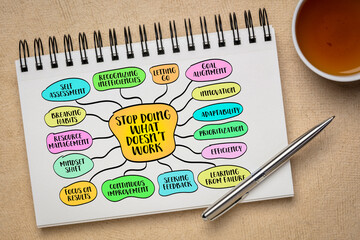 SELF
ASSESSMENT
RECOGNIZING
INEFFICIENCIES
LETTING
GO
GOAL
ALIGNMENT
BREAKING
HABITS
INNOVATION
RESOURCE
MANAGEMENT
STOP DOING
WHAT
DOESN'T
WORK
ADAPTABILITY
PRIORITIZATION
MINDSET
SHIFT
EFFICIENCY
FOCUS ON
RESULTS
CONTINUOUS
IMPROVEMENT
SEEKING
FEEDBACK
LEARNING
FROM FAILURE